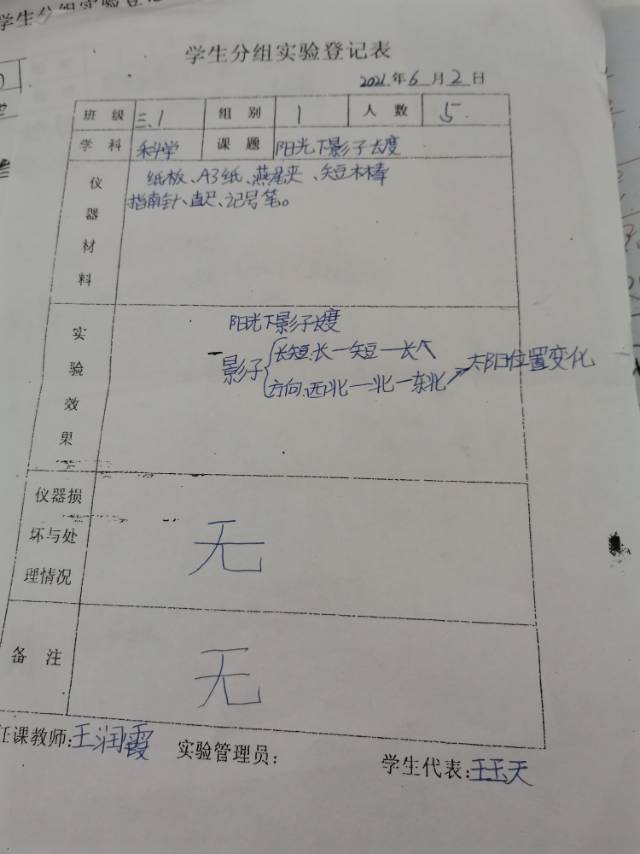 学生分组实验登记表
2021年6月2日
班级 三.1 组别 1 人数 5
学科 科学 课题 阳光下影子长度
仪器材料 纸板、A3纸、燕尾夹、短木棒
指南针、直尺、记号笔。
实验效果 阳光下影子长度
影子 长短:长一短一长
方向:西北一北一东北 太阳位置变化
仪器损坏与处理情况 无
备注 无
任课教师:王润霞 实验管理员: 学生代表:王玉天